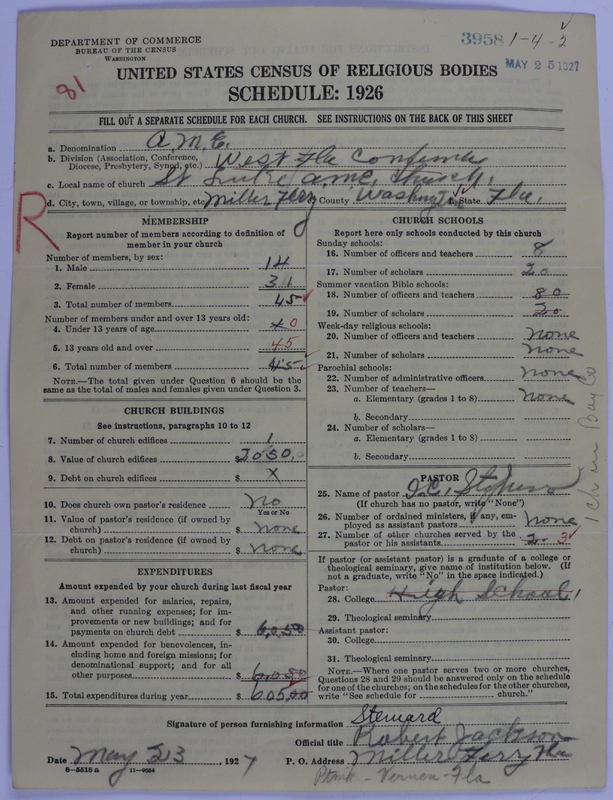 DEPARTMENT OF COMMERCE
BUREAU OF THE CENSUS
WASHINGTON
3958 1-4-2
MAY 25 1927
81
UNITED STATES CENSUS OF RELIGIOUS BODIES
SCHEDULE: 1926
FILL OUT A SEPARATE SCHEDULE FOR EACH CHURCH. SEE INSTRUCTIONS ON THE BACK OF THIS SHEET
a. Denomination A.M.E.
b. Division (Association, Conference, Diocese, Presbytery, Synod, etc.) West Fla Conference
c. Local name of church St Luke a.m.e. church.
d. City, town, village, or township, etc. Miller Fery County Washington State Fla.
R
MEMBERSHIP
Report number of members according to definition of
member in your church
Number of members, by sex:
1. Male 14
2. Female 31
3. Total number of members 45
Number of members under and over 13 years old:
4. Under 13 years of age 0
5. 13 years old and over 45
6. Total number of members 45
NOTE.—The total given under Question 6 should be the
same as the total of males and females given under Question 3.
CHURCH BUILDINGS
See instructions, paragraphs 10 to 12
7. Number of church edifices 1
8. Value of church edifices $
9. Debt on church edifices $ X
10. Does church own pastor's residence No
Yes or No
11. Value of pastor's residence (if owned by
church) $ None
12. Debt on pastor's residence (if owned by
church) $ None
EXPENDITURES
Amount expended by your church during last fiscal year
13. Amount expended for salaries, repairs,
and other running expenses; for im-
provements or new buildings; and for
payments on church debt $ 60.50
14. Amount expended for benevolences, in-
cluding home and foreign missions; for
denominational support; and for all
other purposes $ 60.50
15. Total expenditures during year $
CHURCH SCHOOLS
Report here only schools conducted by this church
Sunday schools:
16. Number of officers and teachers 8
17. Number of scholars 20
Summer vacation Bible schools:
18. Number of officers and teachers 80
19. Number of scholars 20
Week-day religious schools:
20. Number of officers and teachers none
21. Number of scholars none
Parochial schools:
22. Number of administrative officers none
23. Number of teachers—
a. Elementary (grades 1 to 8) none
b. Secondary
24. Number of scholars—
a. Elementary (grades 1 to 8)
b. Secondary
1 ch in Bay Co
PASTOR
25. Name of pastor Stephens
(If church has no pastor, write "None")
26. Number of ordained ministers, if any, em-
ployed as assistant pastors none
27. Number of other churches served by the
pastor or his assistants 2 3
If pastor (or assistant pastor) is a graduate of a college or
theological seminary, give name of institution below. (If
not a graduate, write "No" in the space indicated.)
Pastor:
28. College High School
29. Theological seminary
Assistant pastor:
30. College
31. Theological seminary
NOTE.—Where one pastor serves two or more churches,
Questions 28 and 29 should be answered only on the schedule
for one of the churches; on the schedules for the other churches,
write "See schedule for church."
Signature of person furnishing information Steward
Official title Robert Jackson
Date May 23, 1927 P. O. Address Miller Fery Fla
8-5518a 11-9054
Ptmk - Vernon - Fla